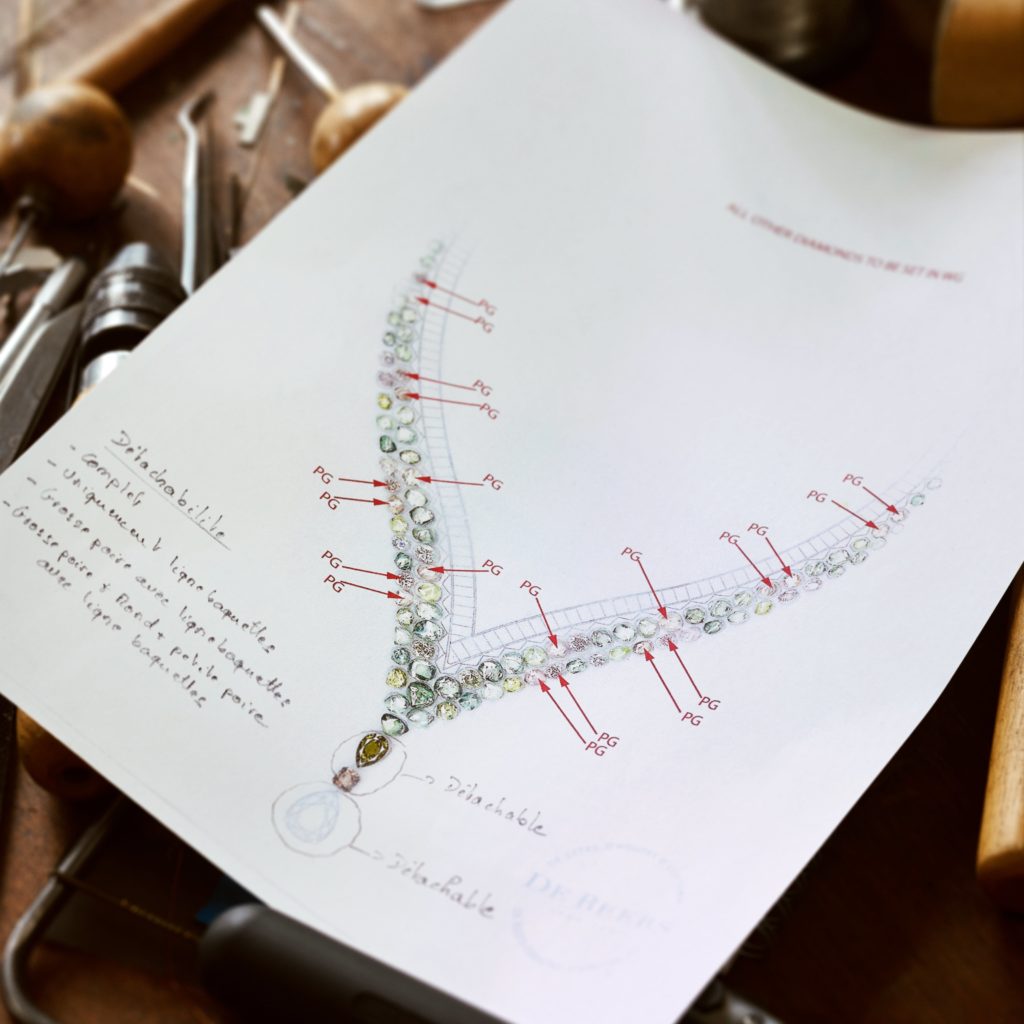 ALL OTHER DIAMONDS TO BE SET IN WG
PG
PG
PG
PG
PG
PG
PG
PG
PG
PG
PG
PG
PG
PG
PG
PG
PG
PG
PG
PG
PG
Détachabilité
- Complet
- Uniquement ligne baguettes
- Grosse poire avec ligne baguettes
- Grosse poire + Rond + petite poire
avec ligne baguettes
Détachable
Détachable
DE BEERS